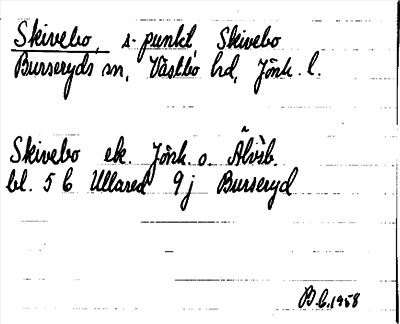 Skivebo, s-punkt, Skivebo
Burseryds sn, Västbo hd, Jönk. l.
Skivebo ek. Jönk. o. Älvsb.
bl. 5 C Ullared 9j Burseryd
B.C. 1958